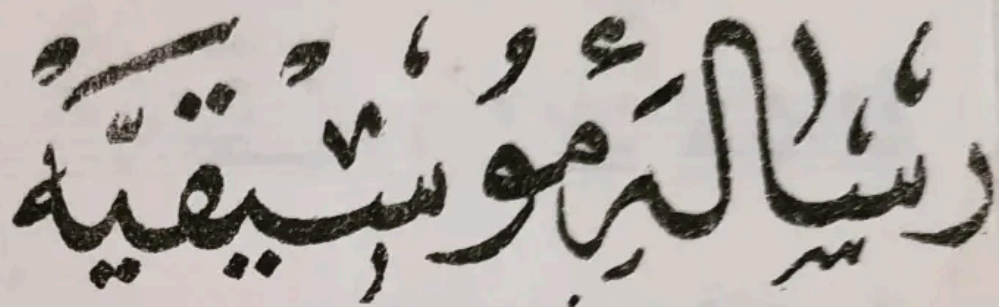 رسالهٔ موسيقيه